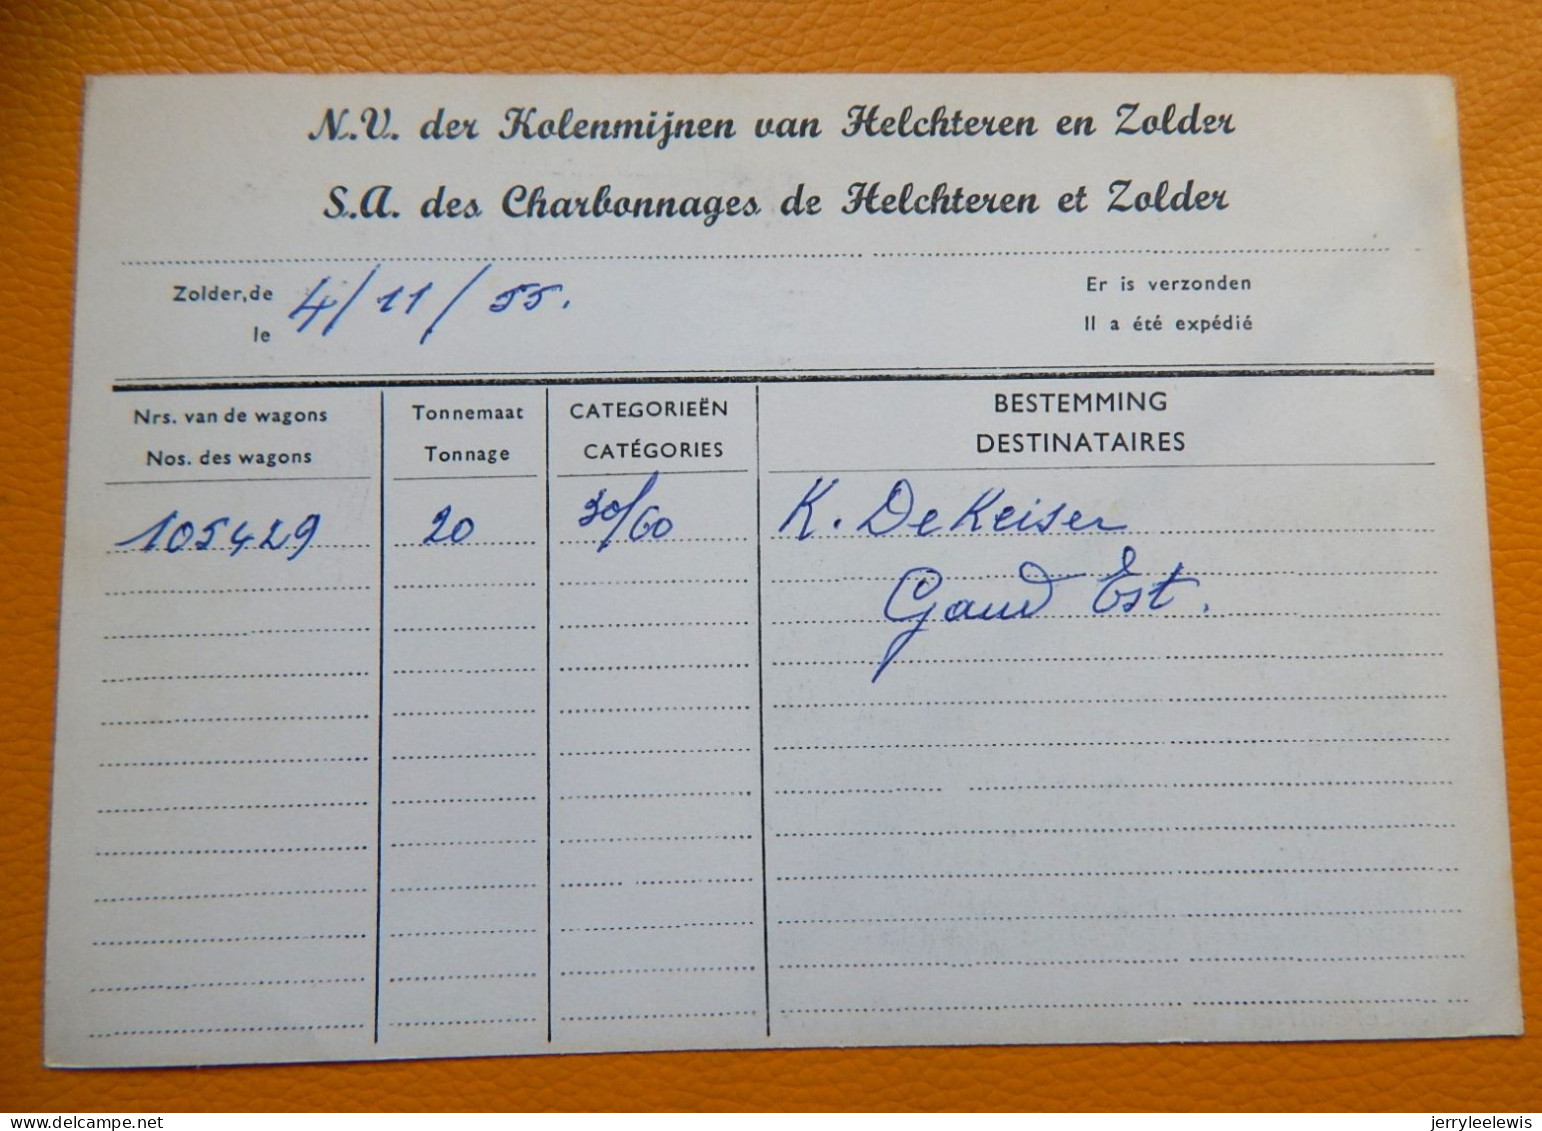 N.V. der Kolenmijnen van Helchteren en Zolder
S.A. des Charbonnages de Helchteren et Zolder
Zolder, de 4/11/55.
le
Er is verzonden
Il a été expédié
Nrs. van de wagons
Nos. des wagons
Tonnemaat
Tonnage
CATEGORIEËN
CATÉGORIES
BESTEMMING
DESTINATAIRES
105429 20 30/60 K. De Keiser
Gand Est.
delcampe.net
jerryleelewis